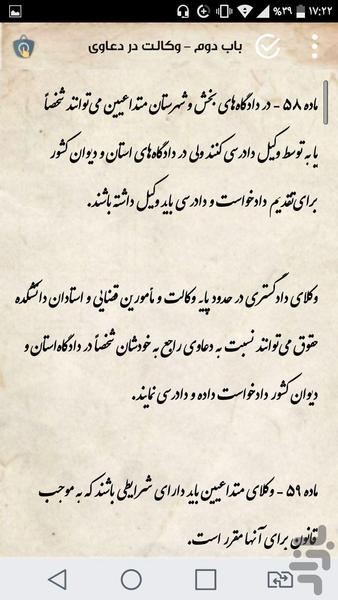 %۳۹ ۱۷:۲۲
باب دوم - وکالت در دعاوی
ماده ۵۸ - در دادگاه‌های بخش و شهرستان متداعیین می‌توانند شخصاً
یا به توسط وکیل دادرسی کنند ولی در دادگاه‌های استان و دیوان کشور
برای تقدیم دادخواست و دادرسی باید وکیل داشته باشند.
وکلای دادگستری در حدود پایه وکالت و مأمورین قضایی و استادان دانشکده
حقوق می‌توانند نسبت به دعاوی راجع به خودشان شخصاً در دادگاه استان و
دیوان کشور دادخواست داده و دادرسی نمایند.
ماده ۵۹ - وکلای متداعیین باید دارای شرایطی باشند که به موجب
قانون برای آنها مقرر است.